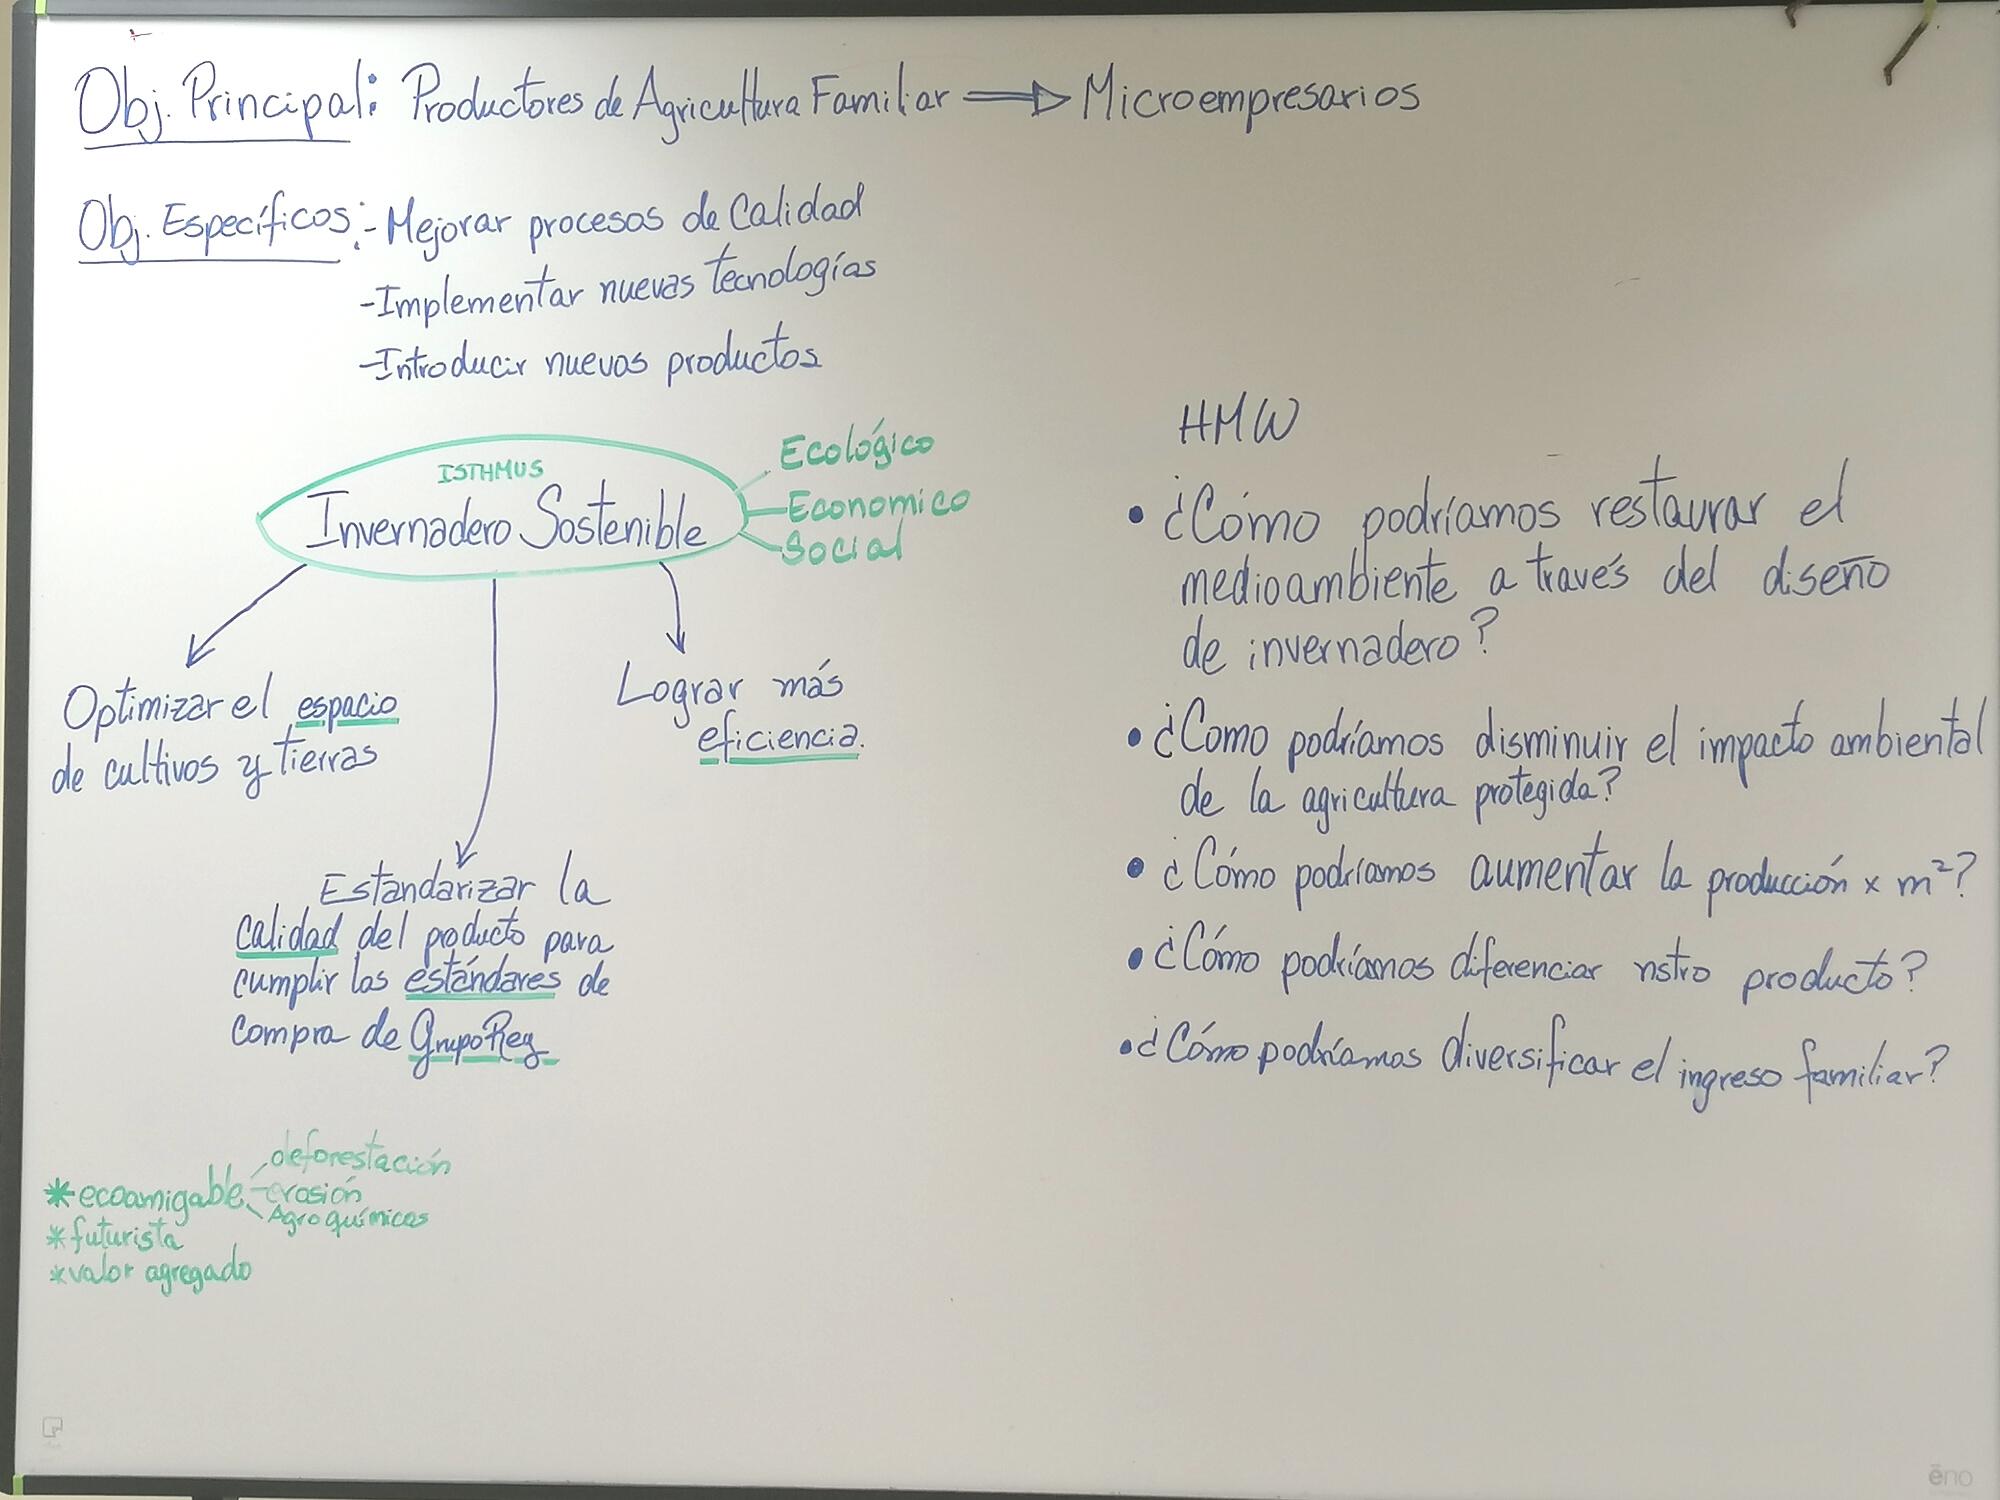 Obj. Principal: Productores de Agricultura Familiar ⇒ Microempresarios
Obj. Específicos: - Mejorar procesos de Calidad
- Implementar nuevas tecnologías
- Introducir nuevos productos
ISTHMUS
Invernadero Sostenible
Ecológico
Economico
Social
Optimizar el espacio
de cultivos y tierras
Lograr más
eficiencia.
Estandarizar la
calidad del producto para
cumplir los estándares de
compra de Grupo Rey
* ecoamigable
deforestación
erosión
Agroquímicos
* futurista
* valor agregado
HMW
• ¿Cómo podríamos restaurar el
medioambiente a través del diseño
de invernadero?
• ¿Como podríamos disminuir el impacto ambiental
de la agricultura protegida?
• ¿Cómo podríamos aumentar la producción x m²?
• ¿Cómo podríamos diferenciar nstro producto?
• ¿Cómo podríamos diversificar el ingreso familiar?
ēno